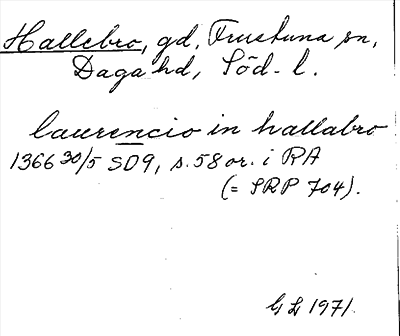 Hallebro, gd, Frustuna sn,
Daga hd, Söd. l.
laurencio in hallabro
1366 30/5 SD9, s. 58 or. i RA
(= SRP 704).
G L 1971.